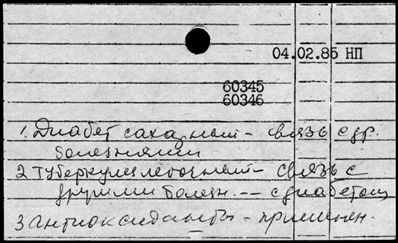 04.02.85 НП
60345
60346
1. Диабет сахарный - связь с др.
болезнями
2 туберкулез легочный - связь с
другими болезн. -- с диабетом
3 антиоксиданты - применен.